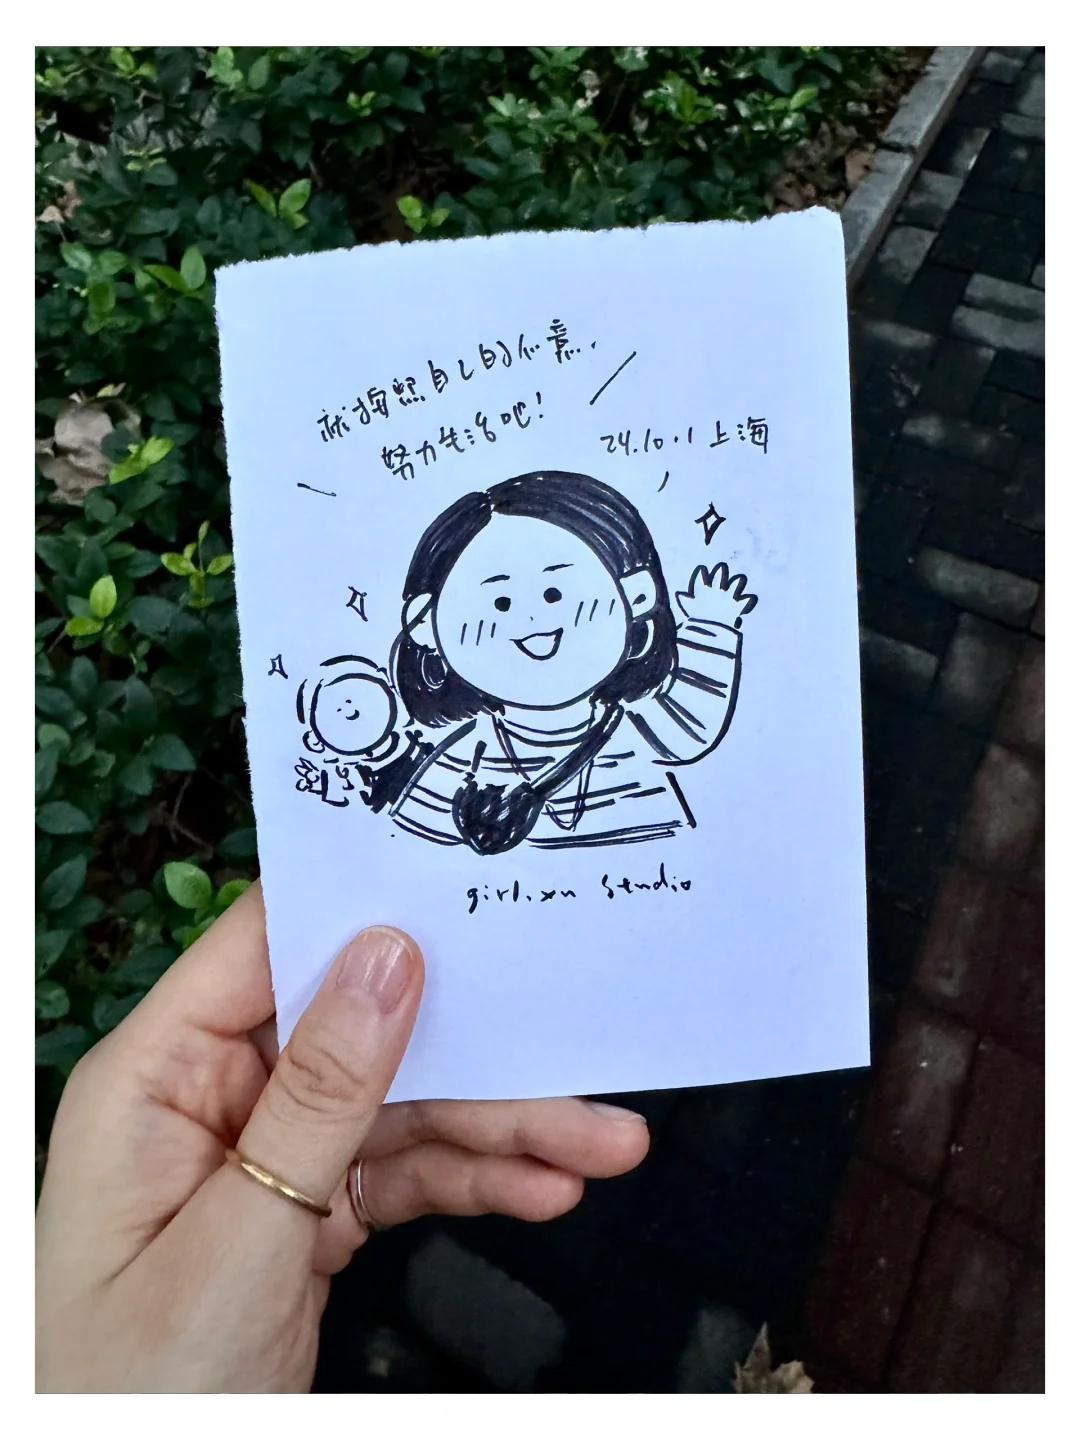 就按照自己的心意,
努力生活吧!
24.10.1 上海
girl.xu Studio